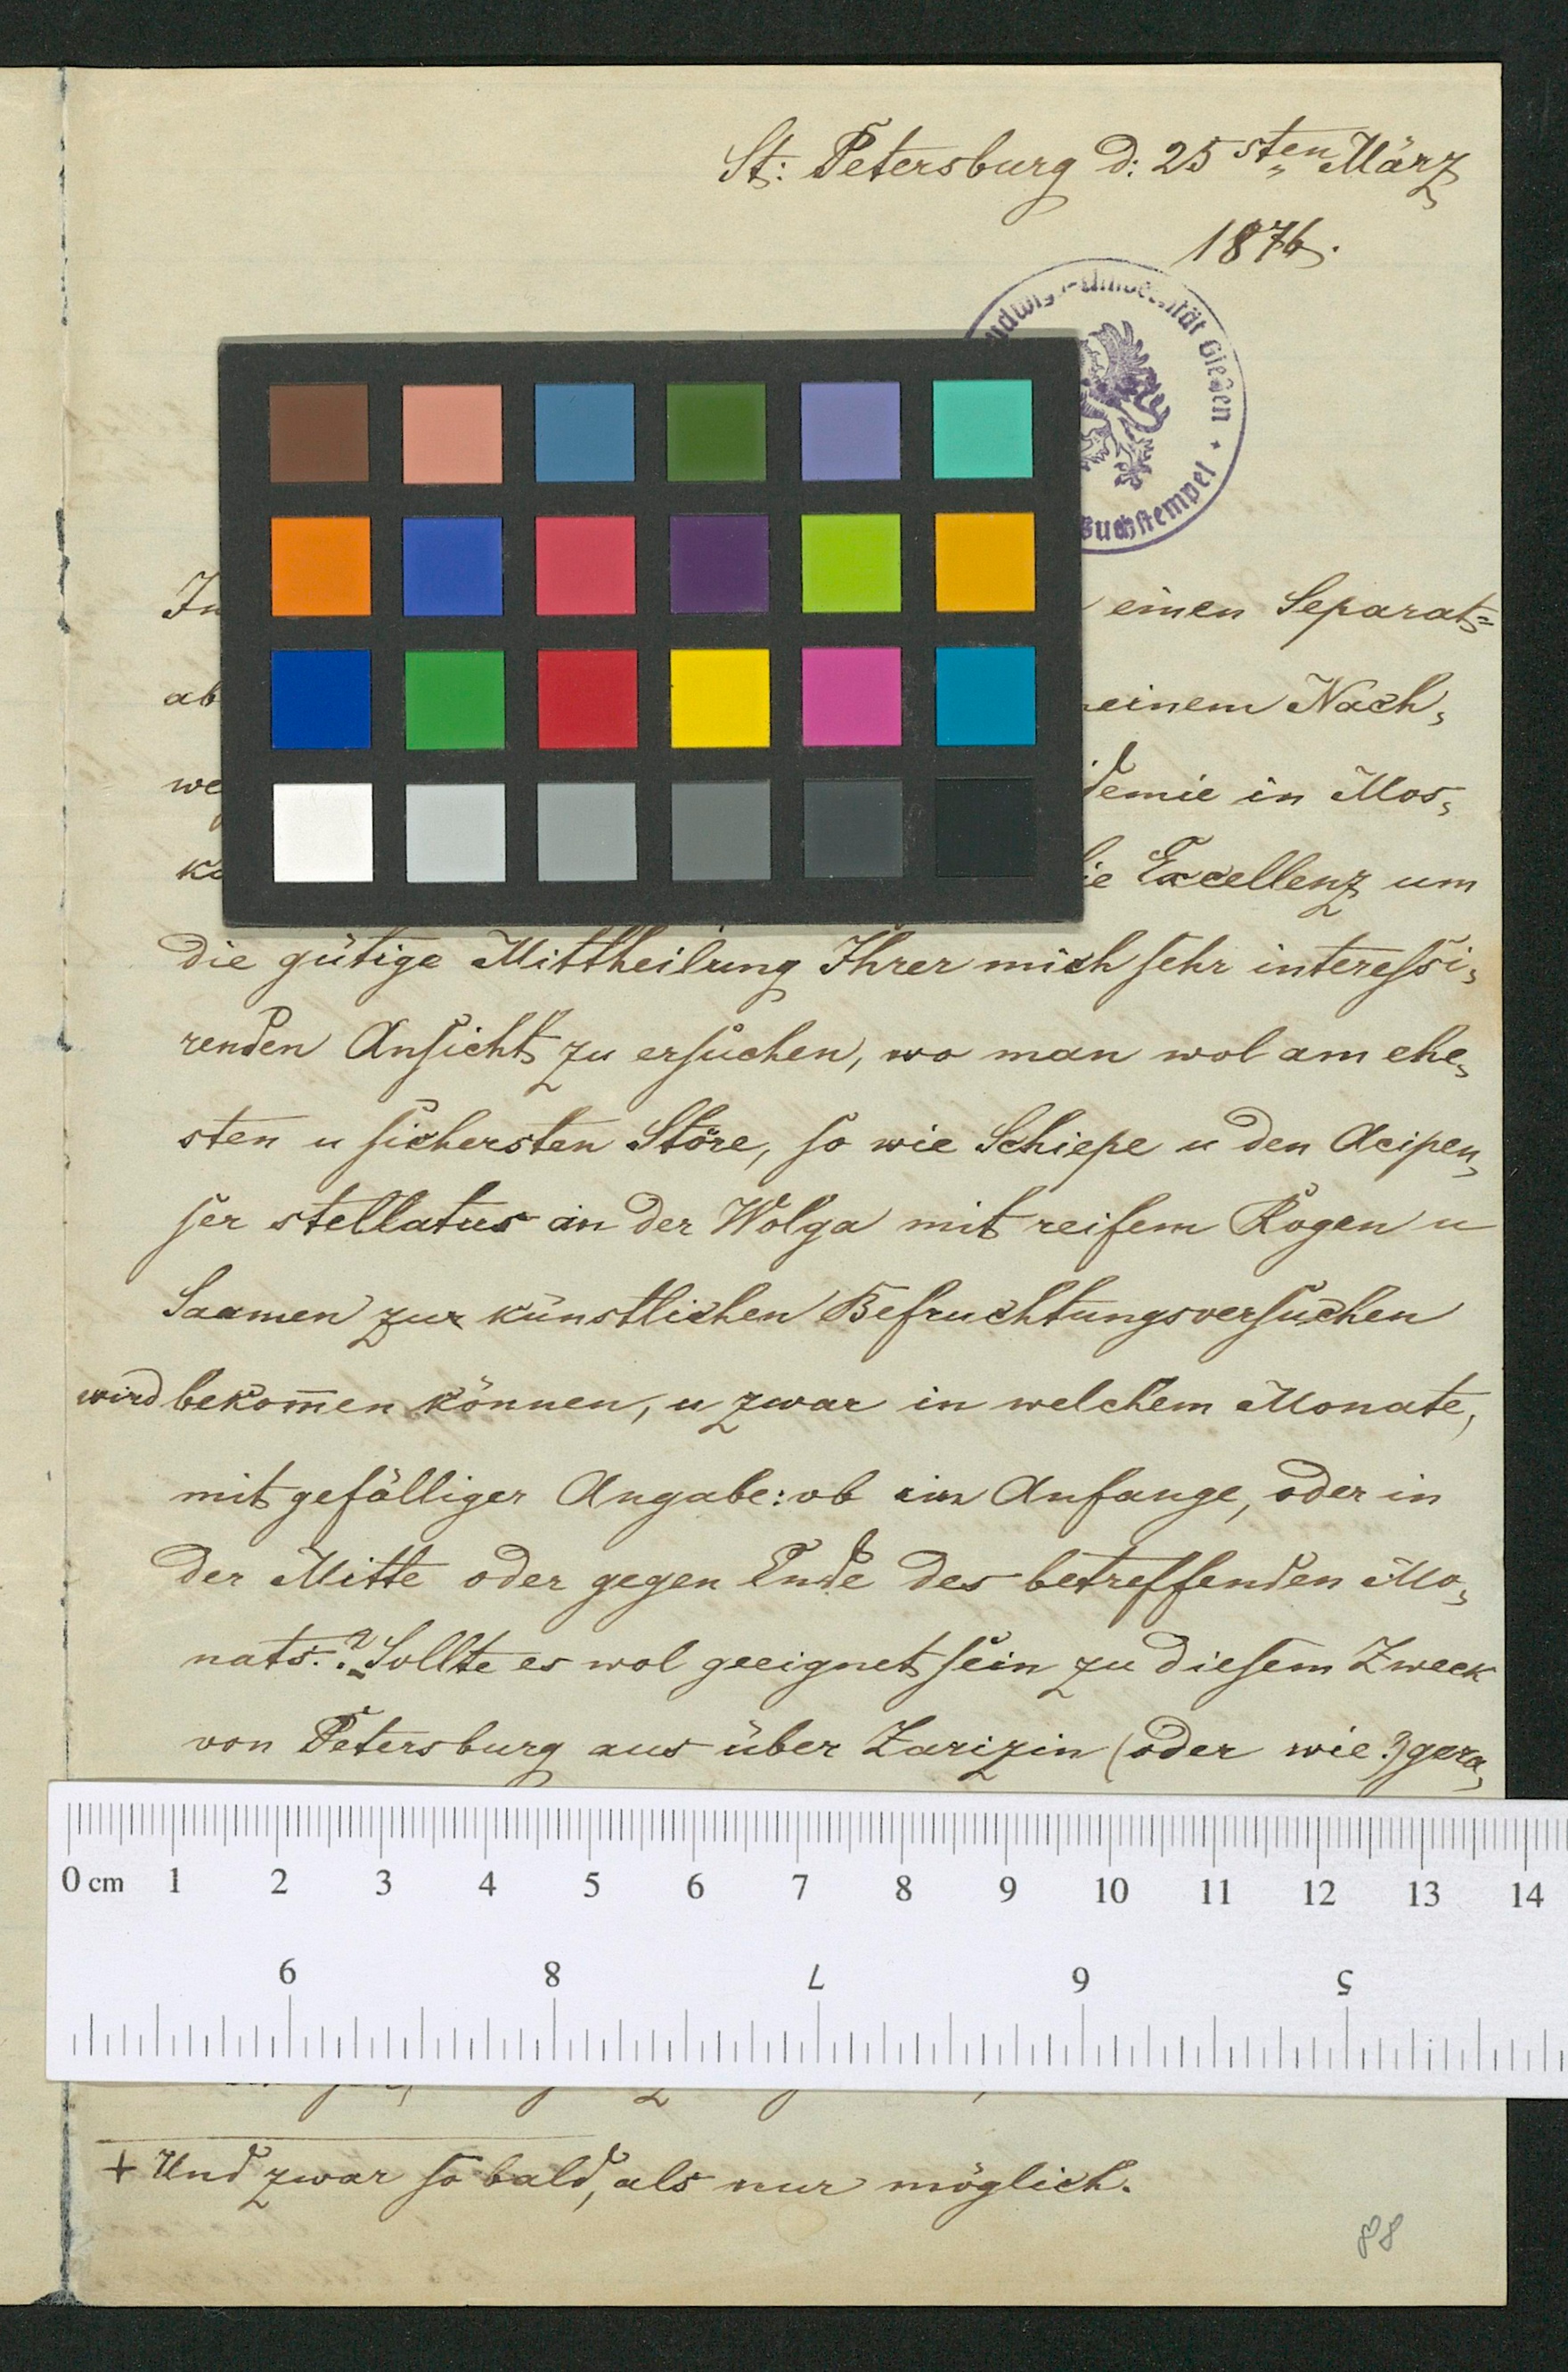 St: Petersburg d: 25sten März
1876.
Universität Gießen
Buchstempel
einen Separat=
ab
einem Nach,
we
demie in Mos,
Excellenz um
die gütige Mittheilung Ihrer mich sehr interessi,
renden Ansicht zu ersuchen, wo man wol am ehe,
sten u sichersten Störe, so wie Schiepe u den Acipen,
ser stellatus an der Wolga mit reifem Rogen u
Saamen zur künstlichen Befruchtungsversuchen
wird bekom̅en können, u zwar in welchem Monate,
mit gefälliger Angabe: ob im Anfange, oder in
der Mitte oder gegen Ende des betreffenden Mo,
nats.? Sollte es wol geeignet sein zu diesem Zweck
von Petersburg aus über Zarizin (oder wie?) gera,
0 cm 1 2 3 4 5 6 7 8 9 10 11 12 13 14
9 8 7 6 5
+ Und zwar so bald, als nur möglich.
88